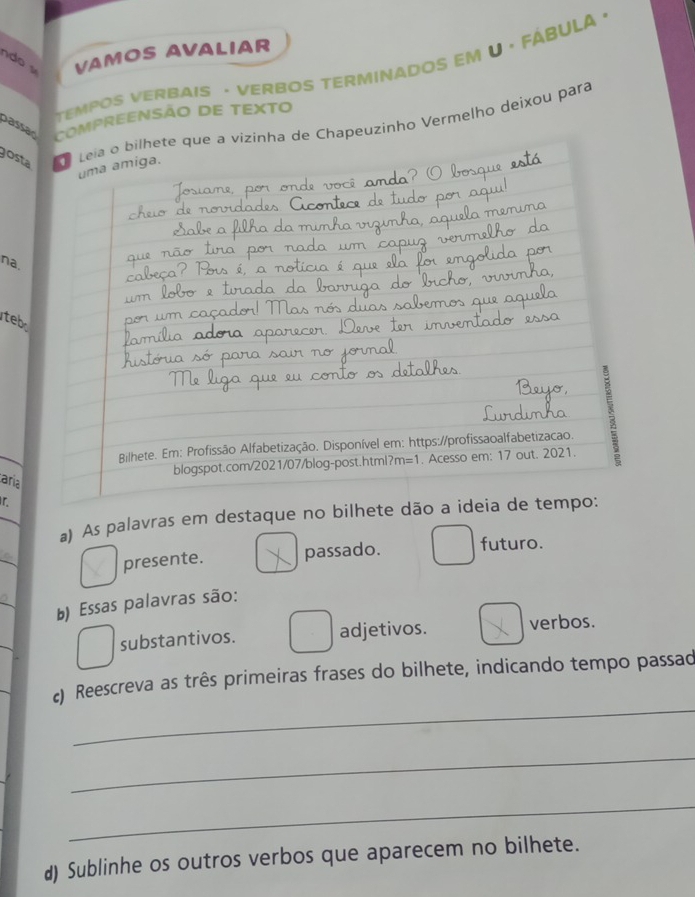 ndo se
passad
gosta
na.
uteb
aria
r.
VAMOS AVALIAR
TEMPOS VERBAIS • VERBOS TERMINADOS EM U • FÁBULA •
COMPREENSÃO DE TEXTO
1 Leia o bilhete que a vizinha de Chapeuzinho Vermelho deixou para
uma amiga.
Josiane, por onde você anda? O bosque está
cheio de novidades. Acontece de tudo por aqui!
Sabe a filha da minha vizinha, aquela menina
que não tira por nada um capuz vermelho da
cabeça? Pois é, a notícia é que ela foi engolida por
um lobo e tirada da barriga do bicho, vivinha,
por um caçador! Mas nós duas sabemos que aquela
família adora aparecer. Deve ter inventado essa
história só para sair no jornal.
Me liga que eu conto os detalhes.
Beijo,
Lurdinha
Bilhete. Em: Profissão Alfabetização. Disponível em: https://profissaoalfabetizacao.
blogspot.com/2021/07/blog-post.html?m=1. Acesso em: 17 out. 2021.
a) As palavras em destaque no bilhete dão a ideia de tempo:
presente. X passado. futuro.
b) Essas palavras são:
substantivos. adjetivos. X verbos.
c) Reescreva as três primeiras frases do bilhete, indicando tempo passad
d) Sublinhe os outros verbos que aparecem no bilhete.